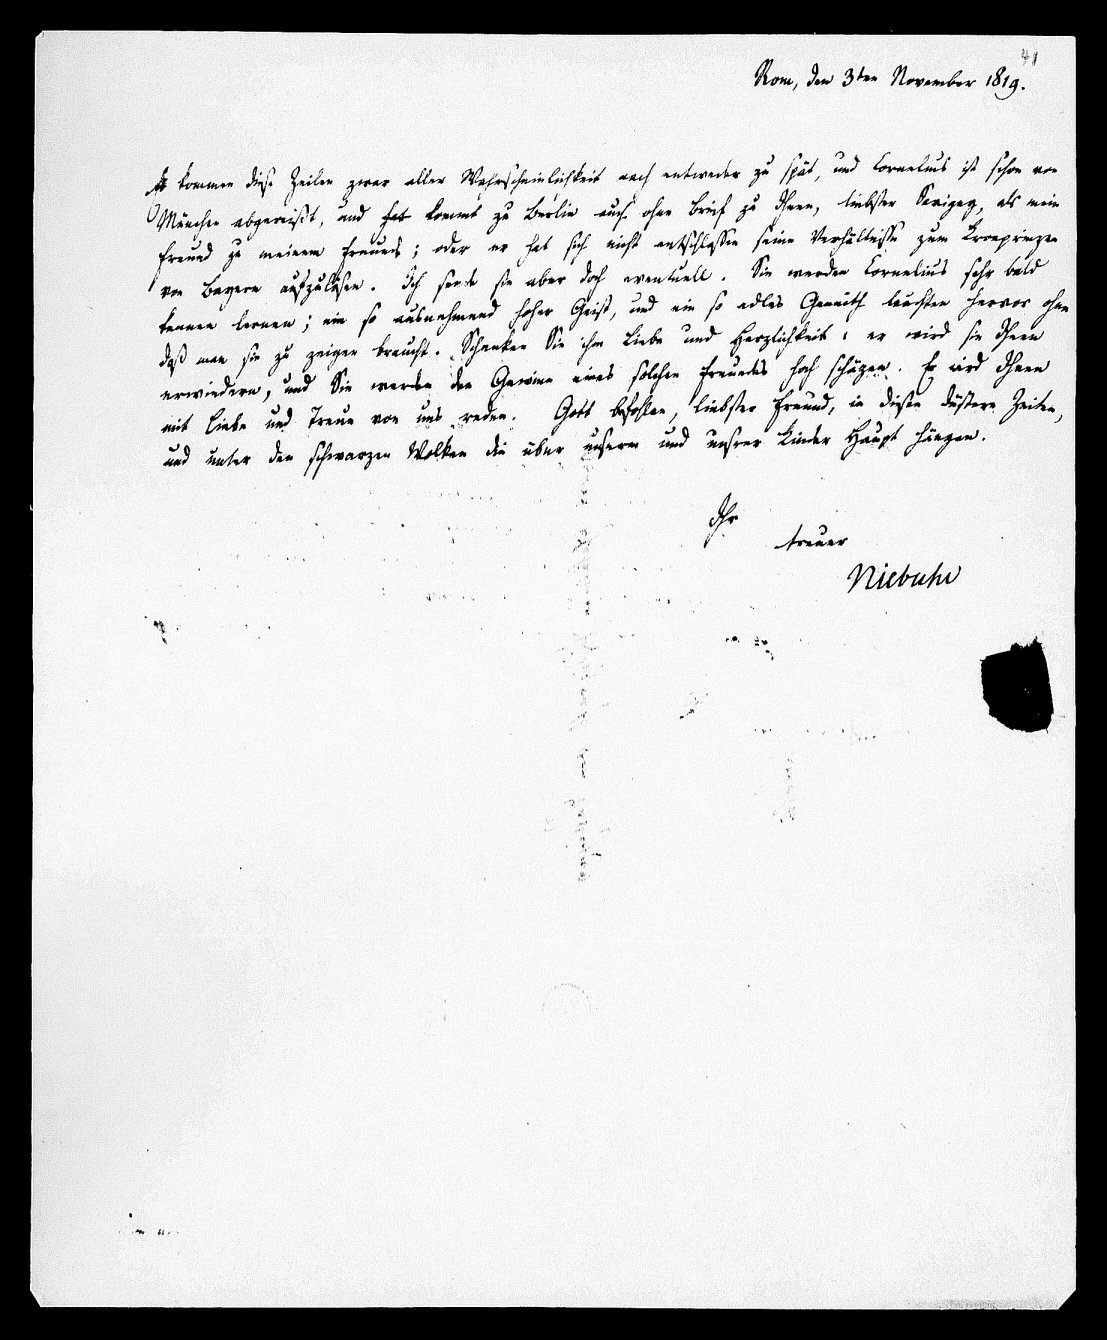 41
Rom, den 3ten November 1819.
Es kommen diese Zeilen zwar aller Wahrscheinlichkeit nach entweder zu spät, und Cornelius ist schon von
München abgereißt, und kommt zu Berlin auch ohne Brief zu Ihnen, liebster Savigny, als mein
Freund zu meinem Freunde; oder er hat sich nicht entschlossen seine Verhältnisse zum Kronprinzen
von Bayern aufzulösen. Ich sende sie aber doch eventuell. Sie werden Cornelius sehr bald
kennen lernen; ein so ausnehmend hoher Geist, und ein so edles Gemüth leuchten hervor ohne
daß man sie zu zeigen braucht. Schenken Sie ihm Liebe und Herzlichkeit: er wird sie Ihnen
erwiedern, und Sie werden den Gewinn eines solchen Freundes hoch schäzen. Er wird Ihnen
mit Liebe und Treue von uns reden. Gott befohlen, liebster Freund, in diesen düstern Zeiten,
und unter den schwarzen Wolken die über unserm und unsrer Kinder Haupt hängen.
Ihr
treuer
Niebuhr